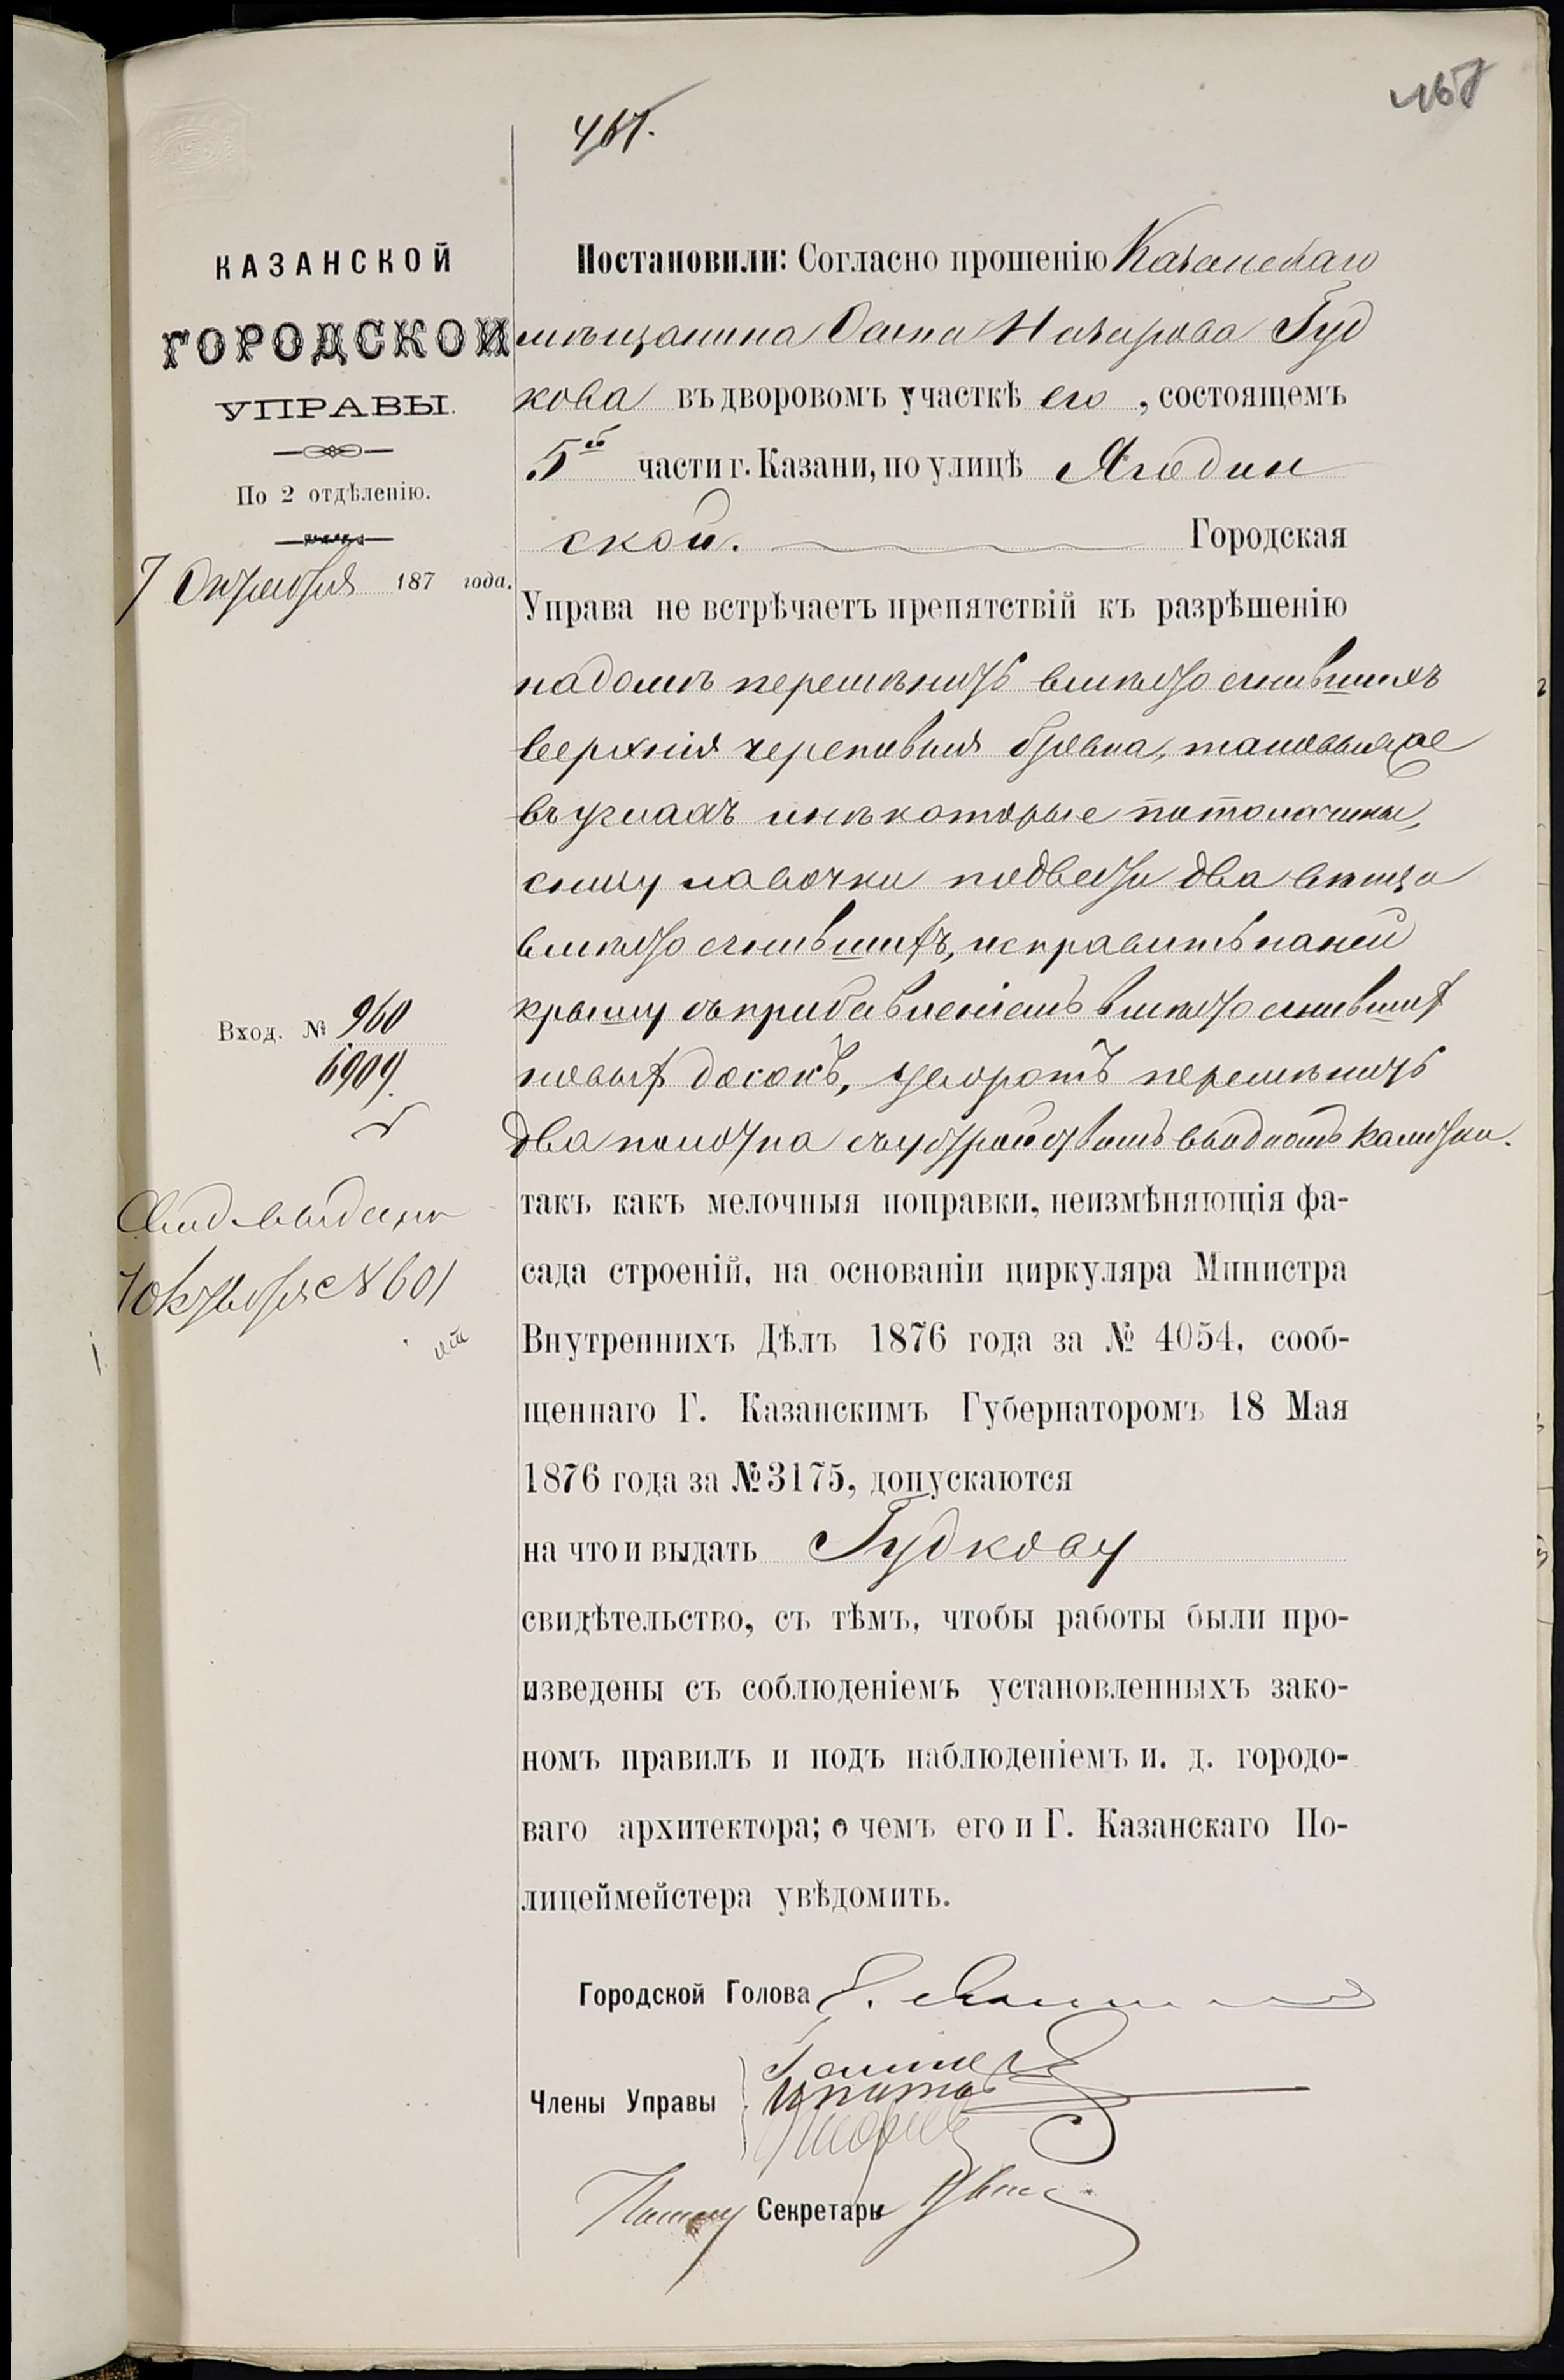 457.
КАЗАНСКОЙ
ГОРОДСКОЙ
УПРАВЫ.
По 2 отдѣленію.
7 Октября 187 года.
Вход. № 960
6909.
Свид. выдано
7 октября № 601
Постановили: Согласно прошенію Казанскаго
мѣщанина Назарова Гуд
кова въ дворовомъ участкѣ его, состоящемъ
5й части г. Казани, по улицѣ Ягодин
ской. Городская
Управа не встрѣчаетъ препятствій къ разрѣшенію
на домѣ перемѣнить вмѣсто сгнившихъ
верхнія черепныя бревна, таковыя же
въ углахъ и нѣкоторые потолочины,
снизу лавочки подвести два вѣнца
вмѣсто сгнившихъ, исправить на ней
крышу съ прибавленіемъ вмѣсто сгнившихъ
новыхъ досокъ, у воротъ перемѣнить
два полотна съ устройствомъ въ одномъ калитки.
такъ какъ мелочныя поправки, неизмѣняющія фа-
сада строеній, на основаніи циркуляра Министра
Внутреннихъ Дѣлъ 1876 года за № 4054, сооб-
щеннаго Г. Казанскимъ Губернаторомъ 18 Мая
1876 года за № 3175, допускаются
на что и выдать Гудкову
свидѣтельство, съ тѣмъ, чтобы работы были про-
изведены съ соблюденіемъ установленныхъ зако-
номъ правилъ и подъ наблюденіемъ и. д. городо-
ваго архитектора; о чемъ его и Г. Казанскаго По-
лицеймейстера увѣдомить.
Городской Голова
Члены Управы
Секретарь